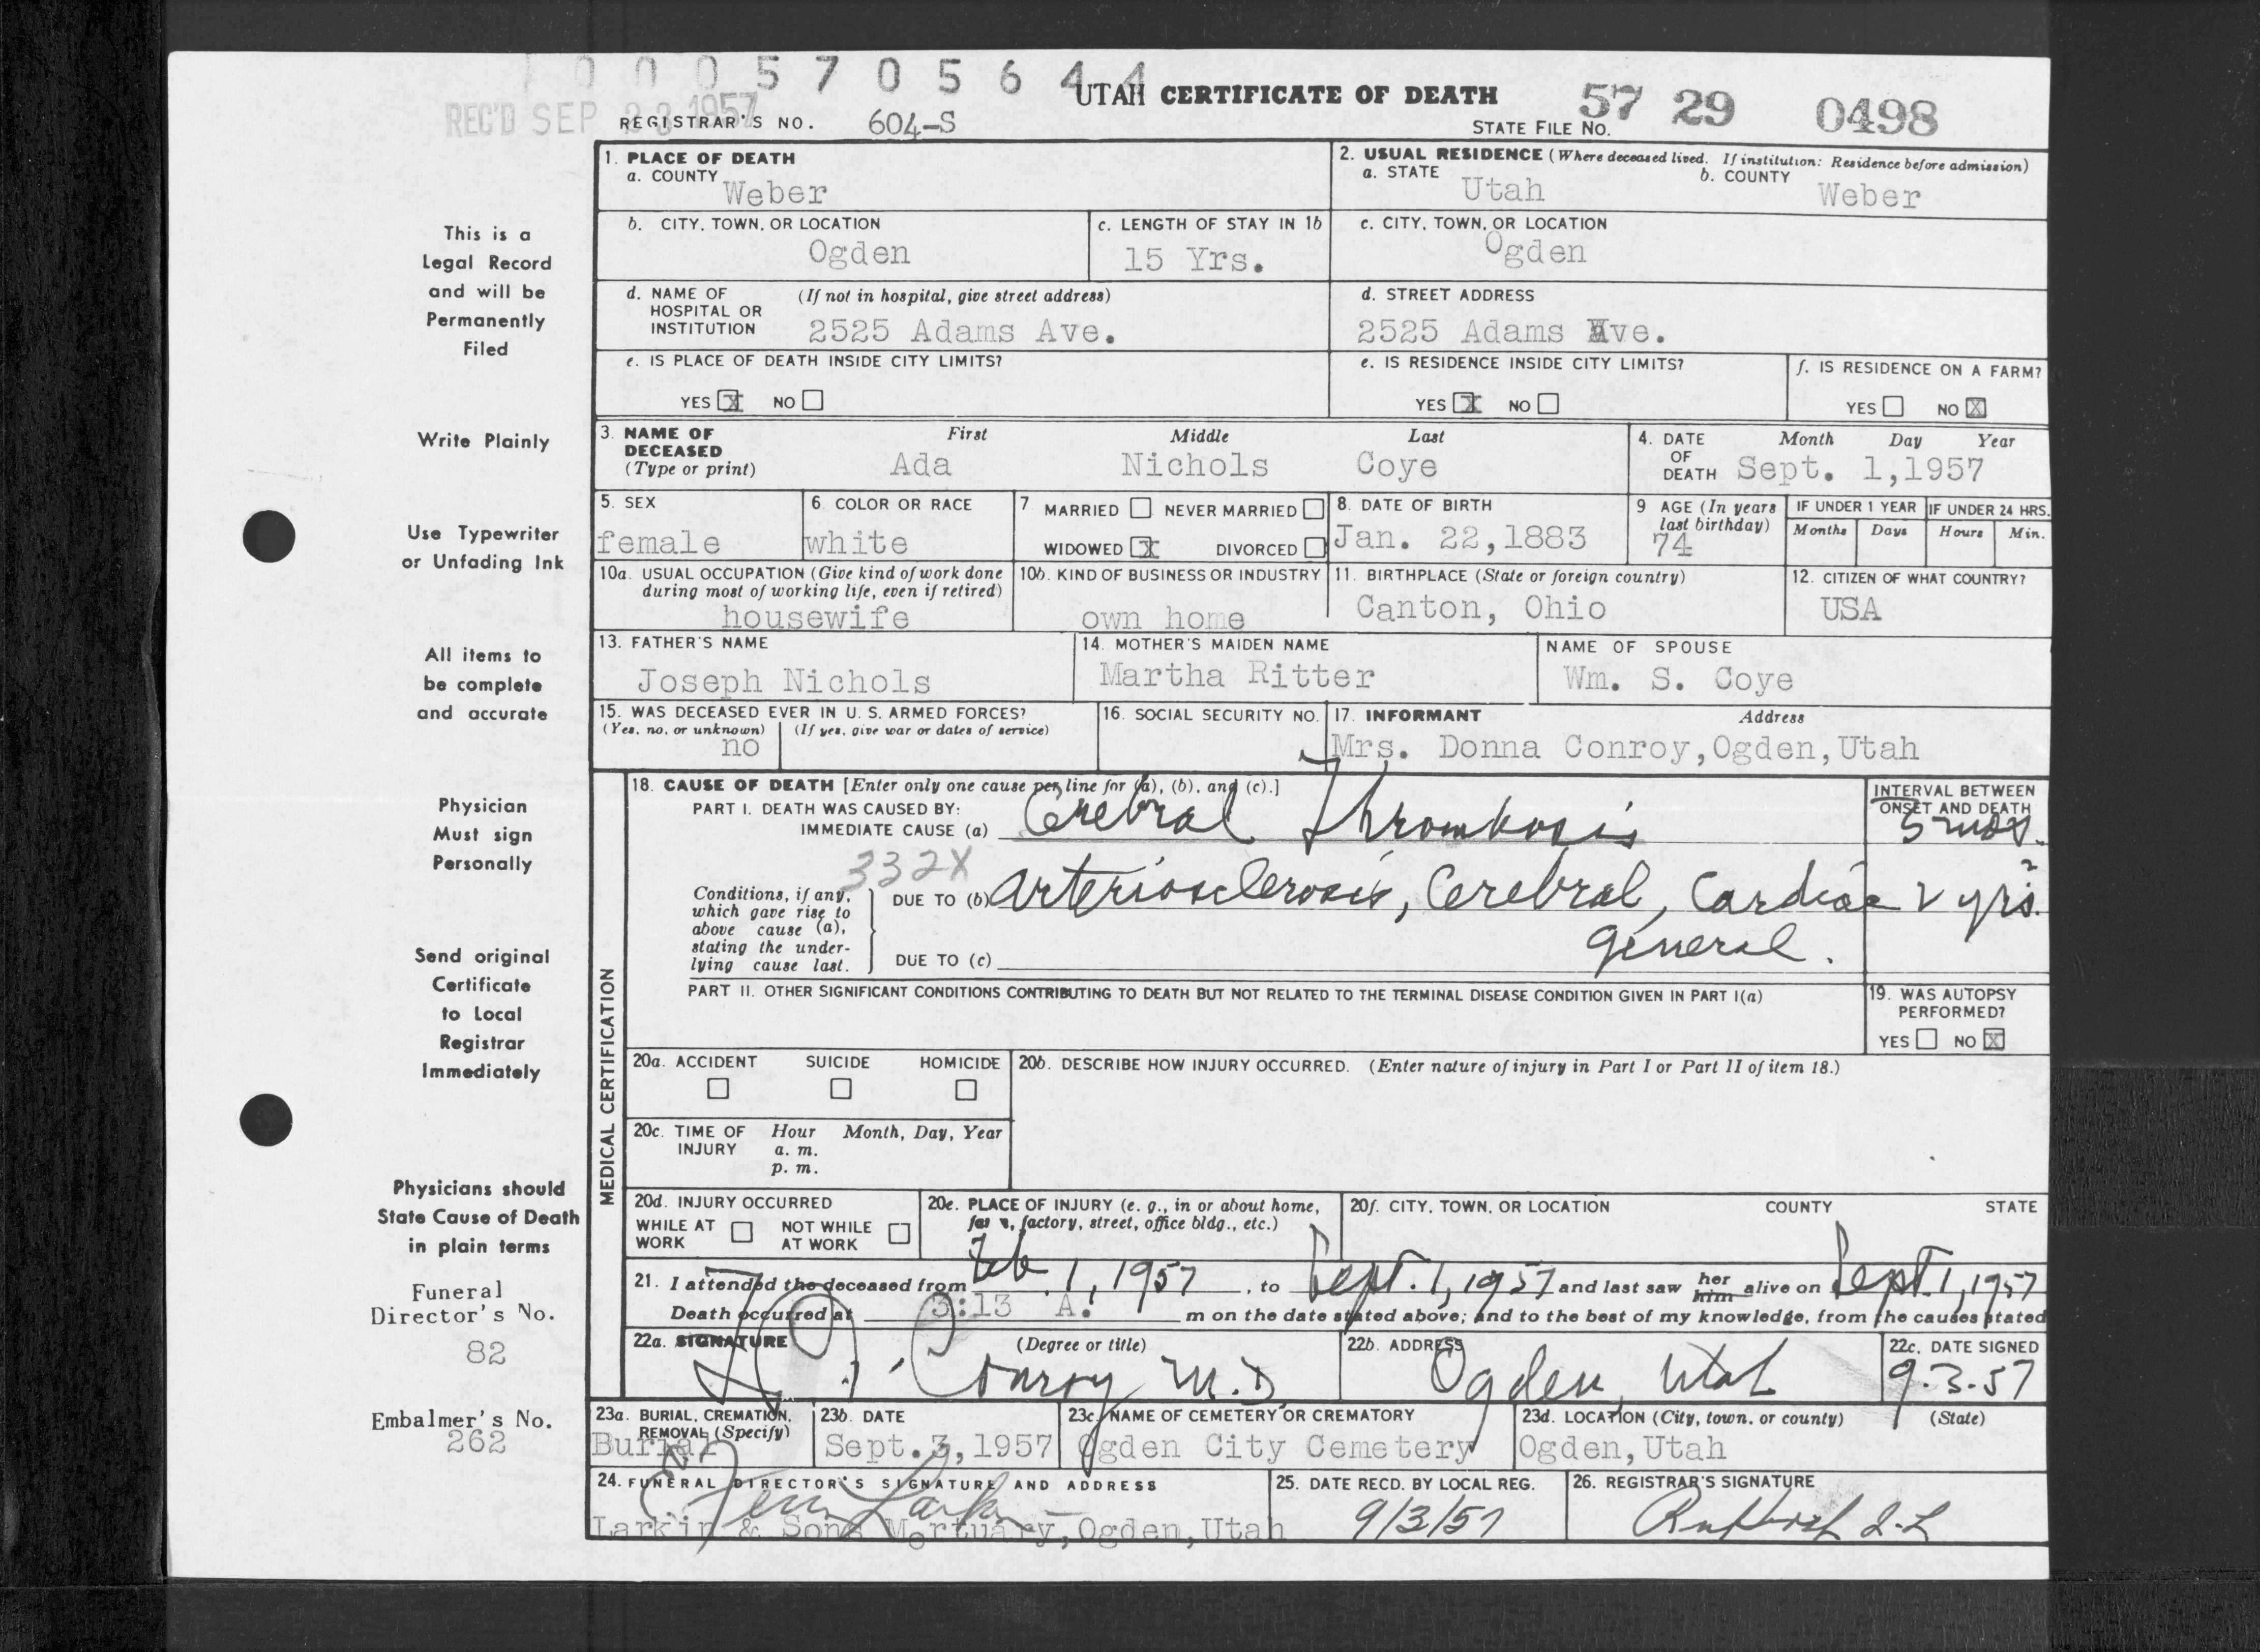 0 0 0 5 7 0 5 6 4 4
UTAH CERTIFICATE OF DEATH
57 29 0498
REC'D SEP 23 1957
REGISTRAR'S NO. 604-S
STATE FILE No.
1. PLACE OF DEATH
a. COUNTY
Weber
2. USUAL RESIDENCE (Where deceased lived. If institution: Residence before admission)
a. STATE
Utah
b. COUNTY
Weber
b. CITY, TOWN, OR LOCATION
Ogden
c. LENGTH OF STAY IN 1b
15 Yrs.
c. CITY, TOWN, OR LOCATION
Ogden
d. NAME OF HOSPITAL OR INSTITUTION
(If not in hospital, give street address)
2525 Adams Ave.
d. STREET ADDRESS
2525 Adams Ave.
e. IS PLACE OF DEATH INSIDE CITY LIMITS?
YES X NO
e. IS RESIDENCE INSIDE CITY LIMITS?
YES X NO
f. IS RESIDENCE ON A FARM?
YES NO X
3. NAME OF DECEASED (Type or print)
First Middle Last
Ada Nichols Coye
4. DATE OF DEATH
Month Day Year
Sept. 1,1957
5. SEX
female
6. COLOR OR RACE
white
7 MARRIED NEVER MARRIED
WIDOWED X DIVORCED
8. DATE OF BIRTH
Jan. 22,1883
9 AGE (In years last birthday)
74
IF UNDER 1 YEAR
Months Days
IF UNDER 24 HRS.
Hours Min.
10a. USUAL OCCUPATION (Give kind of work done during most of working life, even if retired)
housewife
10b. KIND OF BUSINESS OR INDUSTRY
own home
11. BIRTHPLACE (State or foreign country)
Canton, Ohio
12. CITIZEN OF WHAT COUNTRY?
USA
13. FATHER'S NAME
Joseph Nichols
14. MOTHER'S MAIDEN NAME
Martha Ritter
NAME OF SPOUSE
Wm. S. Coye
15. WAS DECEASED EVER IN U. S. ARMED FORCES?
(Yes, no, or unknown) (If yes, give war or dates of service)
no
16. SOCIAL SECURITY NO.
17. INFORMANT Address
Mrs. Donna Conroy,Ogden,Utah
MEDICAL CERTIFICATION
18. CAUSE OF DEATH [Enter only one cause per line for (a), (b), and (c).]
PART I. DEATH WAS CAUSED BY:
IMMEDIATE CAUSE (a) Cerebral Thrombosis
INTERVAL BETWEEN ONSET AND DEATH
5 mos.
332X
Conditions, if any, which gave rise to above cause (a), stating the underlying cause last.
DUE TO (b) Arteriosclerosis, Cerebral, Cardiac 2 yrs.
general.
DUE TO (c)
PART II. OTHER SIGNIFICANT CONDITIONS CONTRIBUTING TO DEATH BUT NOT RELATED TO THE TERMINAL DISEASE CONDITION GIVEN IN PART I(a)
19. WAS AUTOPSY PERFORMED?
YES NO X
20a. ACCIDENT SUICIDE HOMICIDE
20b. DESCRIBE HOW INJURY OCCURRED. (Enter nature of injury in Part I or Part II of item 18.)
20c. TIME OF INJURY
Hour Month, Day, Year
a. m.
p. m.
20d. INJURY OCCURRED
WHILE AT WORK NOT WHILE AT WORK
20e. PLACE OF INJURY (e. g., in or about home, farm, factory, street, office bldg., etc.)
20f. CITY, TOWN, OR LOCATION COUNTY STATE
21. I attended the deceased from Feb. 1, 1957, to Sept. 1, 1957 and last saw her him alive on Sept. 1, 1957
Death occurred at 3:13 A. m on the date stated above; and to the best of my knowledge, from the causes stated
22a. SIGNATURE (Degree or title)
Conroy M.D.
22b. ADDRESS
Ogden, Utah
22c. DATE SIGNED
9.3.57
23a. BURIAL, CREMATION, REMOVAL (Specify)
Burial
23b. DATE
Sept.3,1957
23c. NAME OF CEMETERY OR CREMATORY
Ogden City Cemetery
23d. LOCATION (City, town, or county) (State)
Ogden,Utah
24. FUNERAL DIRECTOR'S SIGNATURE AND ADDRESS
Larkin
Larkin & Sons Mortuary,Ogden,Utah
25. DATE RECD. BY LOCAL REG.
9/3/57
26. REGISTRAR'S SIGNATURE
This is a
Legal Record
and will be
Permanently
Filed
Write Plainly
Use Typewriter
or Unfading Ink
All items to
be complete
and accurate
Physician
Must sign
Personally
Send original
Certificate
to Local
Registrar
Immediately
Physicians should
State Cause of Death
in plain terms
Funeral
Director's No.
82
Embalmer's No.
262